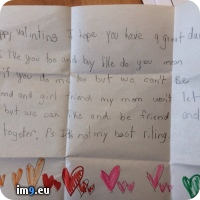 ppy valintine I hope you have a great da
I like you too and by like do you mean
if you do me too but we can't be
and girl friend my mom won't let
but we can like and be friend and
togeter, Ps Its not my best riting
im9.eu